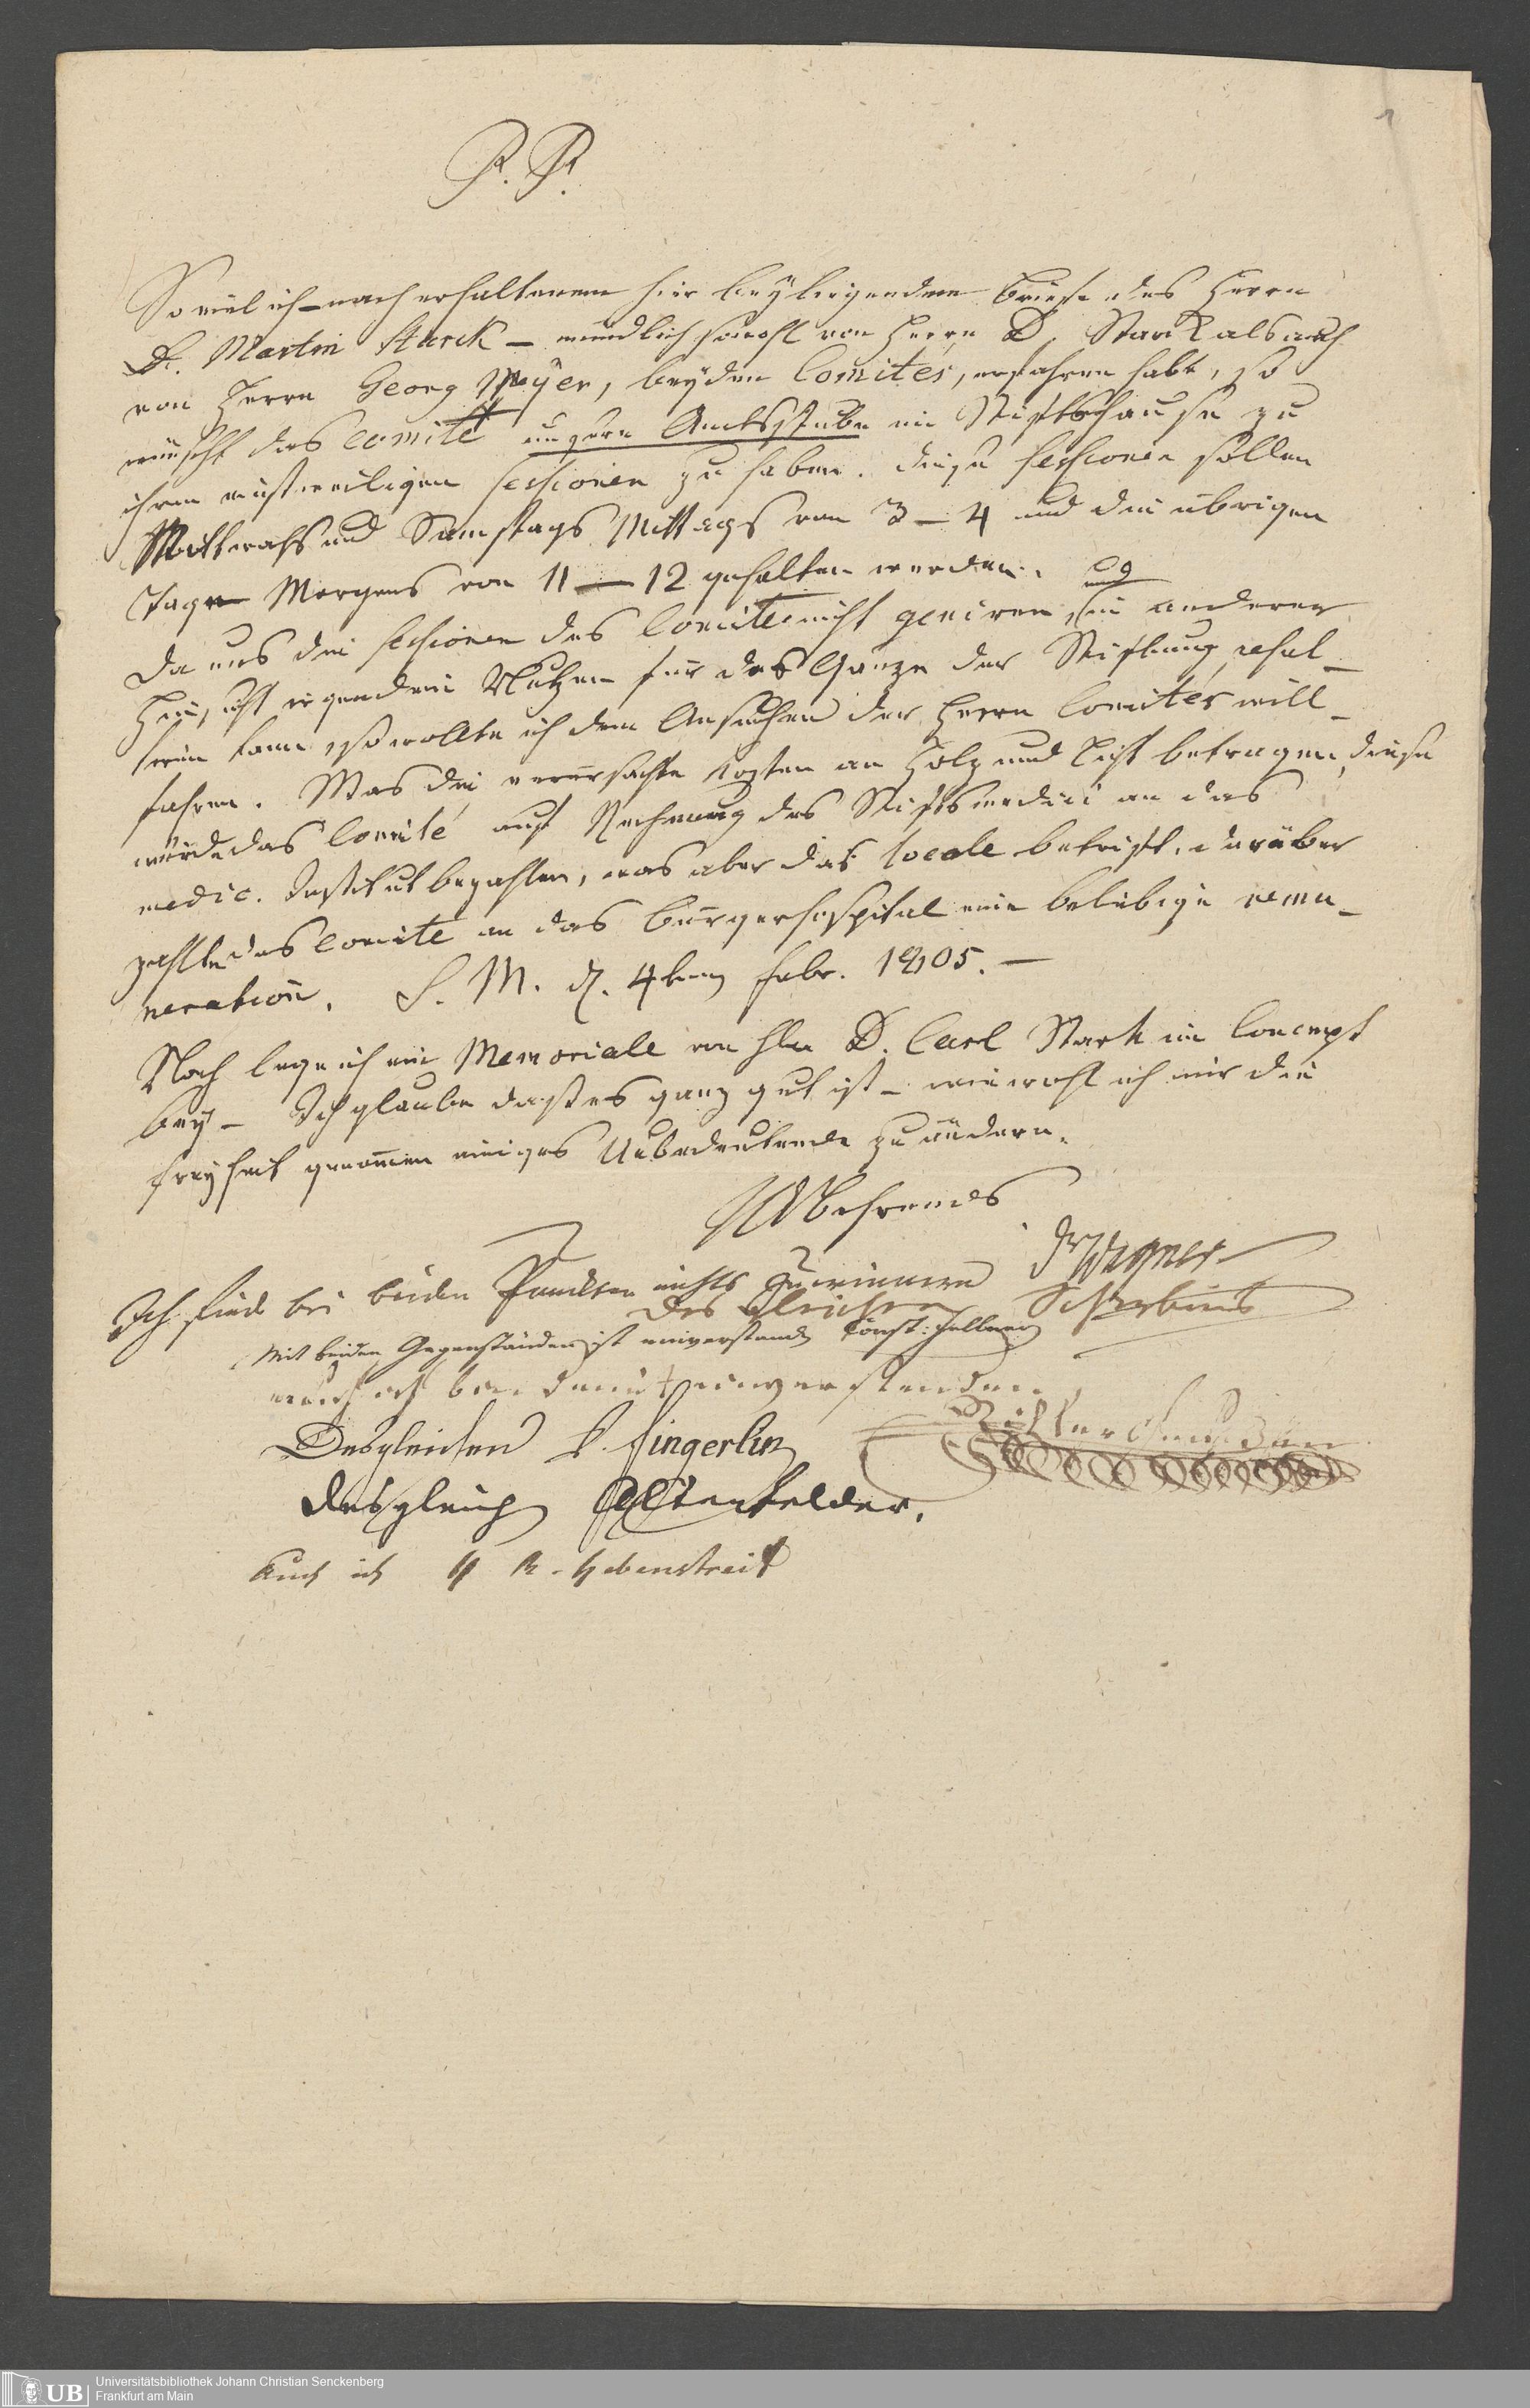 1
P. P.
So viel ich – nach erhaltenem hier beyliegendem Briefe des Herrn
Dr. Martin Starck – mündlich sowohl von Herrn D. Stark als auch
von Herrn Georg Meyer, beyden Comités, erfahren habe, so
wünscht das Comité unsere Amtsstube im Stiftshause zu
ihren einstweiligen Sessionen zu haben. Diese Sessionen sollen
Mittwochs und Samstags Mittags von 3 – 4 und die übrigen
Tage Morgens von 11 – 12 gehalten werden. und
Da uns die Sessionen des Comité nicht geniren, in anderer
Hinsicht irgend ein Nutzen für das Ganze der Stiftung resul-
tiren kann, so wollte ich dem Ansuchen der Herrn Comités will-
fahren. Was die verursachte Kosten an Holz und Licht betragen, diese
würde das Comité auf Rechnung des Stiftsmedici an das
medic. Institut bezahlen, was aber das locale betrift, darüber
zahlte das Comité an das Bürgerhospital eine beliebige remu-
neration. S. M. d. 4ten Febr. 1805. –
Noch lege ich ein Memoriale von Hln D. Carl Stark im Concept
bey – Ich glaube daß es ganz gut ist – wiewohl ich mir die
Freyheit genommen einiges Unbedeutende zu ändern.
Behrends
Ich finde bei beiden Puncten nichts zu erinnern Dr Wagner
Des Gleichen Scherbius
Mit beiden Gegenständen ist einverstanden Const: Fellner
auch ich bin damit einverstanden,
Desgleichen Fingerlin
desgleichen Altenfelder.
Auch ich Hebenstreit
UB
Universitätsbibliothek Johann Christian Senckenberg
Frankfurt am Main